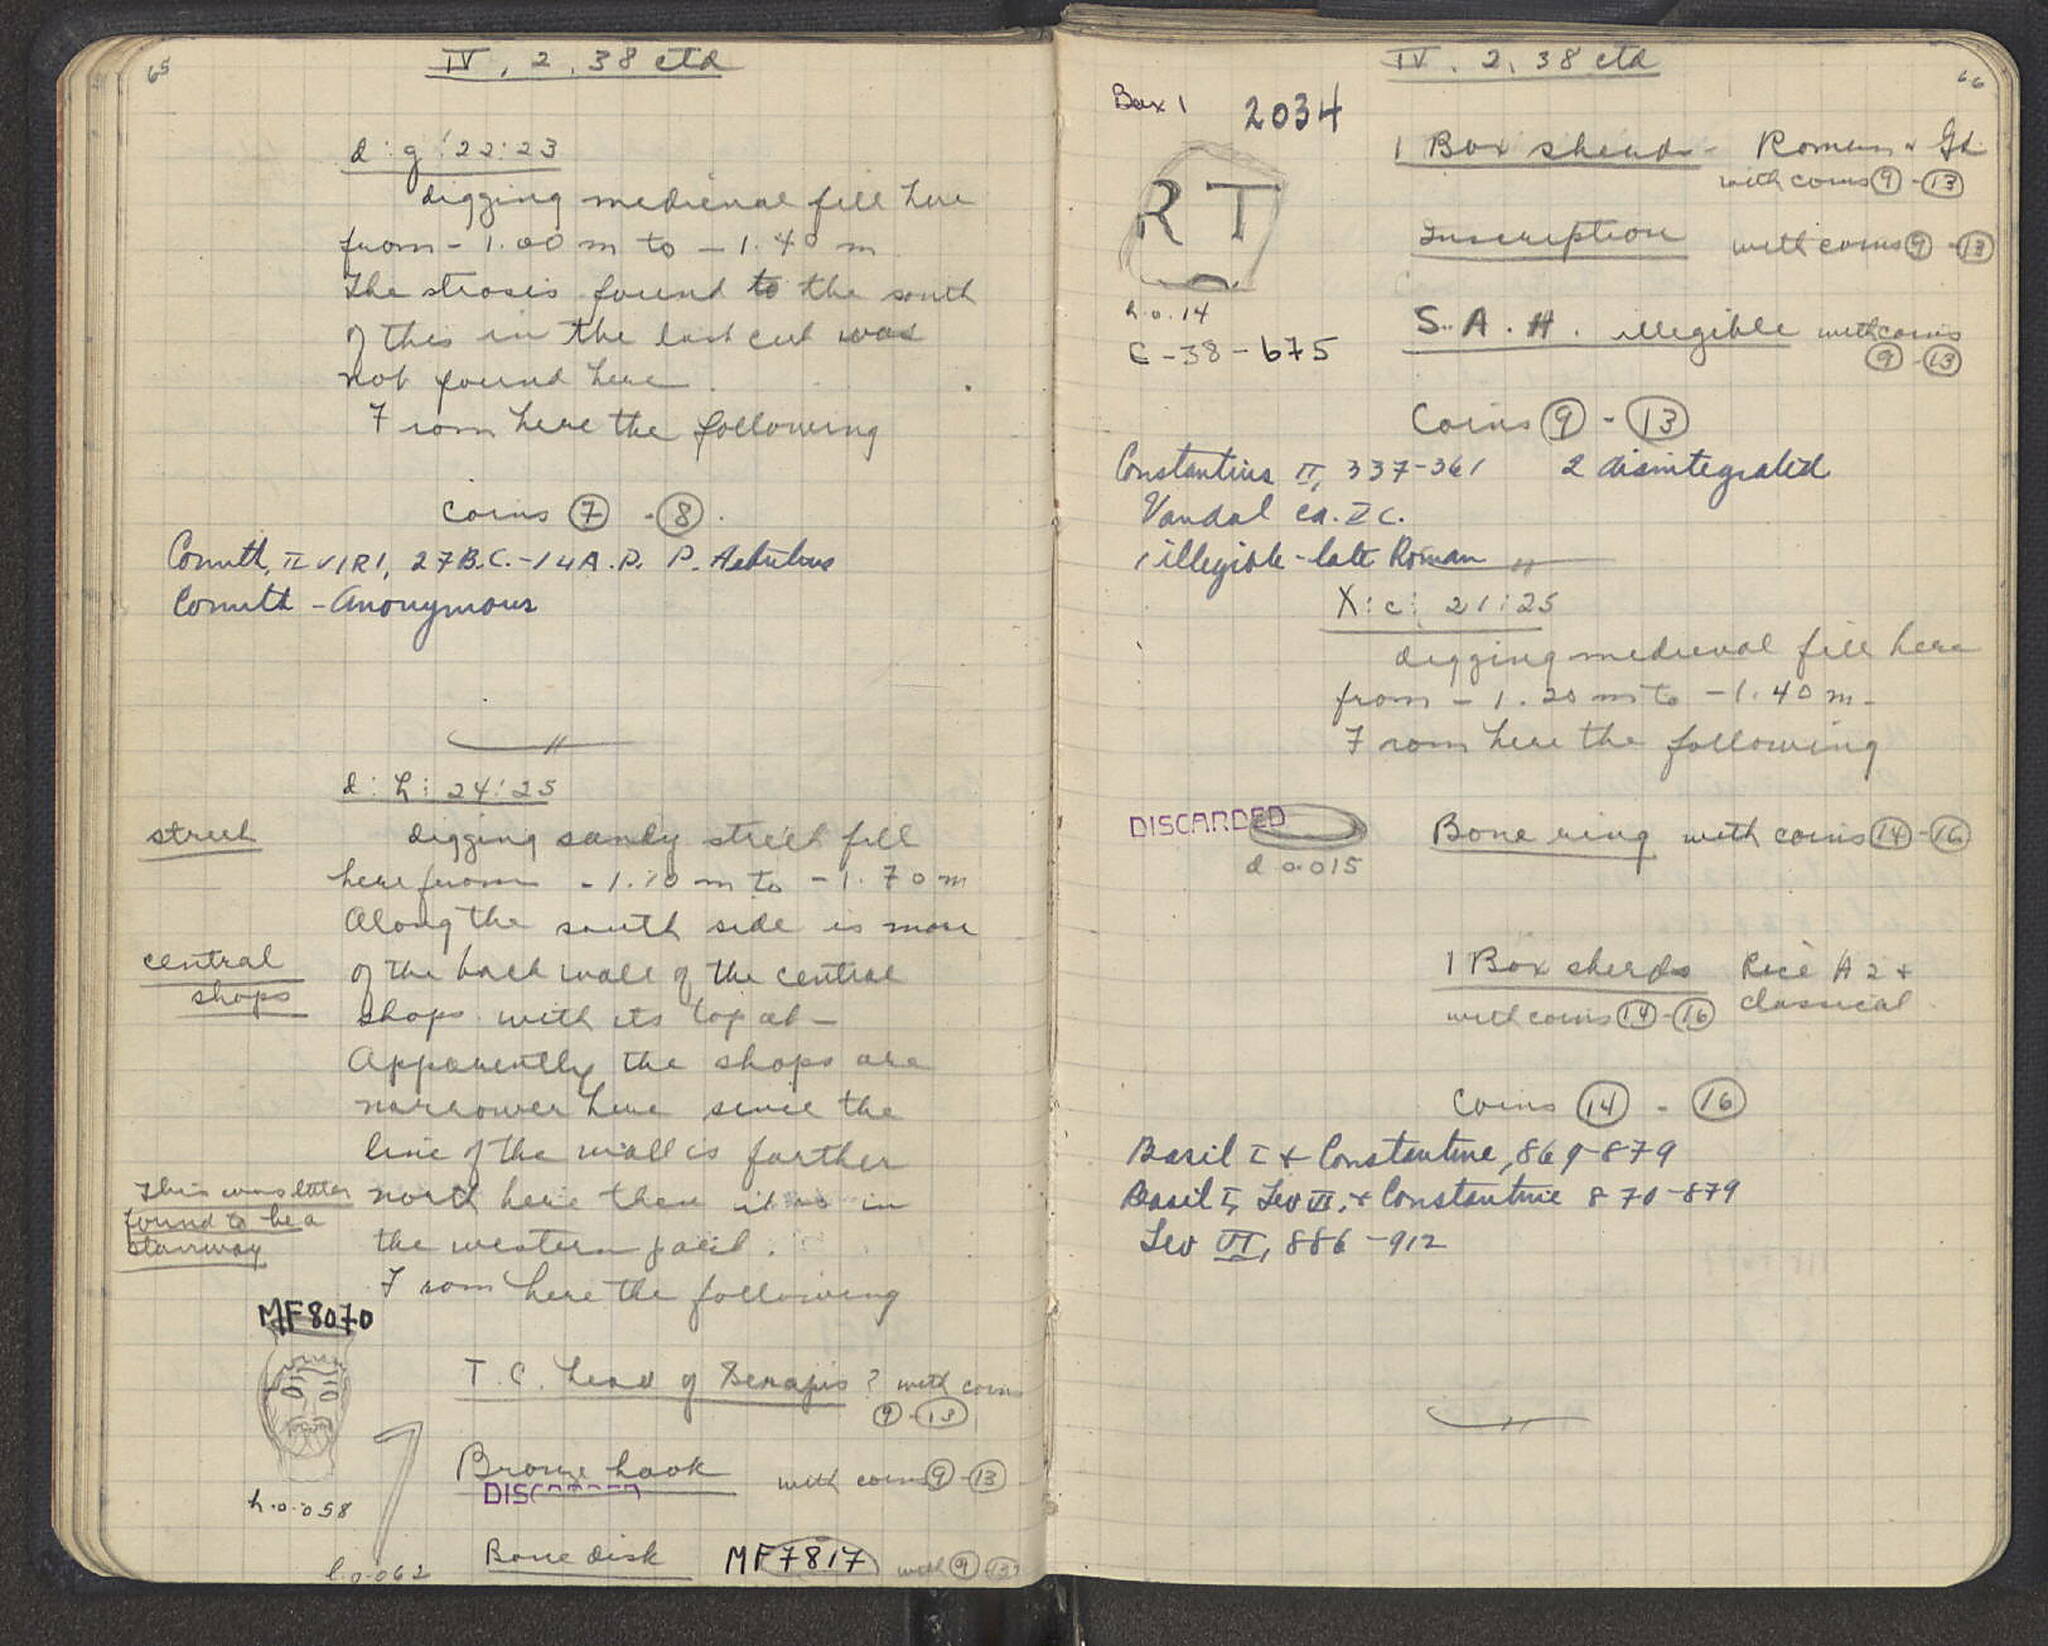 65
IV, 2, 38 ctd
d:g:22:23
digging medieval fill here
from - 1.00 m to - 1.40 m
The strosis found to the south
of this in the last cut was
not found here.
From here the following
Coins 7 - 8.
Corinth, II VIRI, 27 B.C.-14 A.D. P. Aebutius
Corinth - Anonymous
d:h:24:25
street
digging sandy street fill
here from - 1.10 m to - 1.70 m
Along the south side is more
central
shops
of the back wall of the central
shops with its top at -
Apparently the shops are
narrower here since the
line of the wall is farther
This was later
found to be a
stairway
north here than it is in
the western part.
From here the following
MF8070
h.0.058
T.C. head of Serapis? with coins
9 - 13
Bronze hook with coins 9 - 13
DISCARDED
l.0.062
Bone disk MF7817 with 9 - 13
66
IV. 2. 38 ctd
Box 1
2034
R T
h.0.14
C-38-675
1 Box sherds - Roman + Gk
with coins 9 - 13
Inscription with coins 9 - 13
S.A.H. illegible with coins
9 - 13
Coins 9 - 13
Constantius II, 337-361 2 disintegrated
Vandal ca. V c.
1 illegible - late Roman
X:c:21:25
digging medieval fill here
from - 1.20 m to - 1.40 m -
From here the following
DISCARDED
d 0.015
Bone ring with coins 14 - 16
1 Box sherds Rice A 2 +
classical
with coins 14 - 16
Coins 14 - 16
Basil I + Constantine, 869-879
Basil I, Leo VI, + Constantine 870-879
Leo VI, 886-912